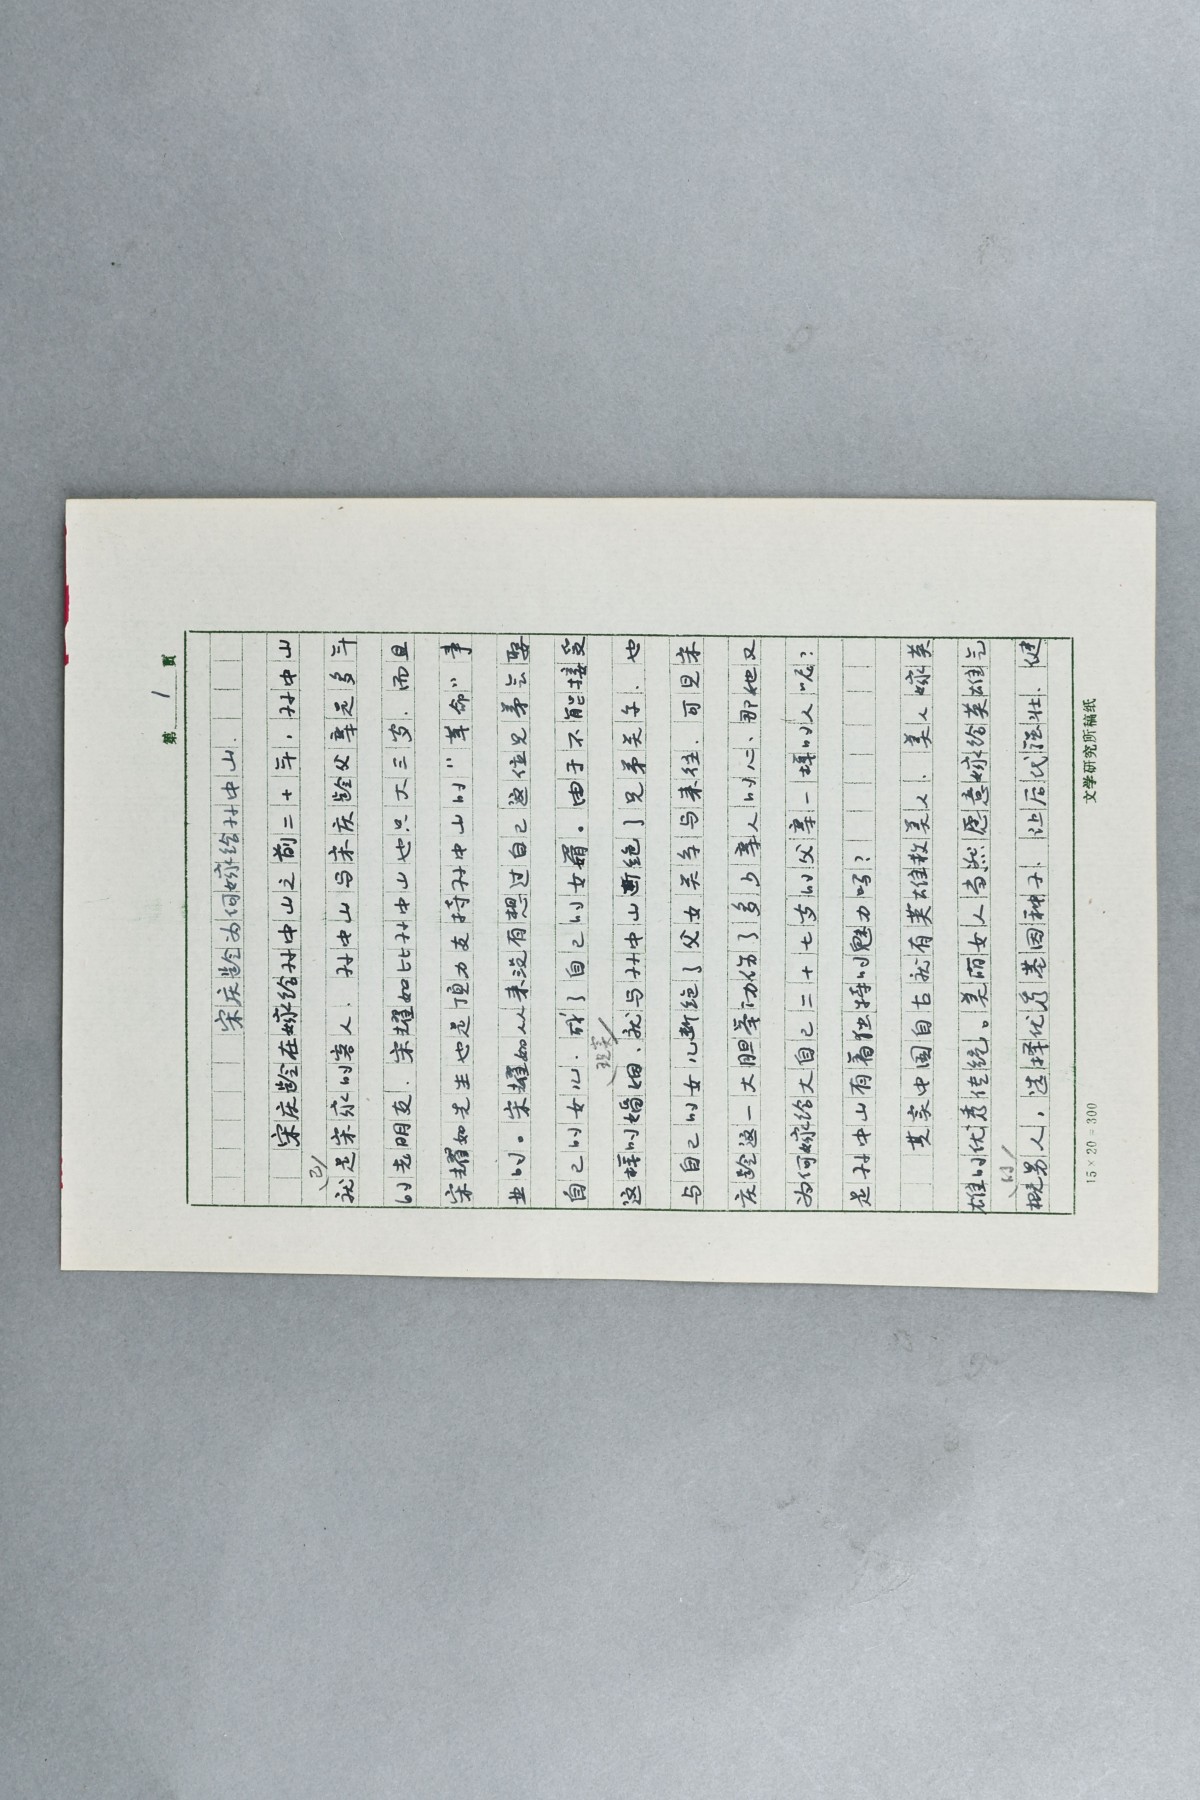 第 1 页
宋庆龄为何嫁给孙中山.
宋庆龄在嫁给孙中山之前二十年,孙中山
已
就是宋家的客人、孙中山与宋庆龄父亲是多年
的老朋友.宋耀如比孙中山也只大三岁.而且
宋耀如先生也是顶力支持孙中山的"革命"事
业的。宋耀如从来没有想过自己这位兄弟会娶
自己的女儿.成了自己的女婿。由于不能接受
现实
这样的婚姻、就与孙中山断绝了兄弟关系、也
与自己的女儿断绝了父女关系与来往.可见宋
庆龄这一大胆举动伤了多少亲人的心、那她又
为何嫁给大自己二十七岁的父亲一样的人呢?
是孙中山有着独特的魅力吗?
其实中国自古就有英雄救美人、美人嫁英
雄的优秀传统。美丽女人当然愿意嫁给英雄气
的
概男人,选择优秀基因种子、让后代强壮.健
15×20=300
文学研究所稿纸